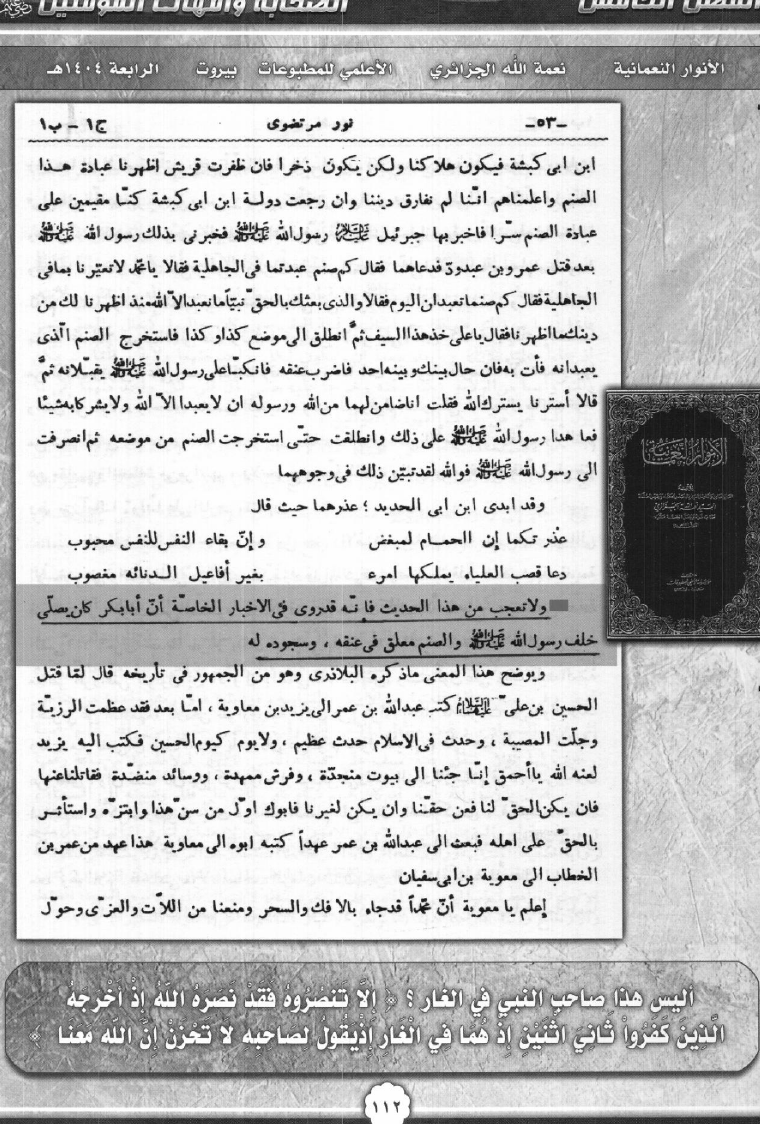 الفصل الخامس
الصحابة وأمهات المؤمنين
الأنوار النعمانية نعمة الله الجزائري الأعلمي للمطبوعات بيروت الرابعة ١٤٠٤هـ
-٥٣- نور مرتضوى ج١ - ب١
ابن ابى كبشة فيكون هلاكنا ولكن يكون ذخرا فان ظفرت قريش اظهرنا عبادة هذا
الصنم واعلمناهم انّنا لم نفارق ديننا وان رجعت دولة ابن ابى كبشة كنّا مقيمين على
عبادة الصنم سرّا فاخبر بها جبرئيل عليه السلام رسول الله صلى الله عليه وآله فخبرنى بذلك رسول الله صلى الله عليه وآله
بعد قتل عمرو بن عبدودّ فدعاهما فقال كم صنم عبدتما فى الجاهلية فقالا يا محمّد لا تعيّرنا بما فى
الجاهلية فقال كم صنما تعبدان اليوم فقالا والذى بعثك بالحقّ نبيّا ما نعبد الاّ الله منذ اظهرنا لك من
دينك ما اظهرنا فقال يا على خذ هذا السيف ثمّ انطلق الى موضع كذا وكذا فاستخرج الصنم الّذى
يعبدانه فأت به فان حال بينك وبينه احد فاضرب عنقه فانكبّا على رسول الله صلى الله عليه وآله يقبّلانه ثمّ
قالا أسترنا يسترك الله فقلت انا ضامن لهما من الله ورسوله ان لا يعبدا الاّ الله ولا يشركا به شيئا
فعا هدا رسول الله صلى الله عليه وآله على ذلك وانطلقت حتّى استخرجت الصنم من موضعه ثم انصرفت
الى رسول الله صلى الله عليه وآله فوالله لقد تبيّن ذلك فى وجوههما
وقد ابدى ابن ابى الحديد ؛ عذرهما حيث قال
عذر تكما إن الحمام لمبغض وإنّ بقاء النفس للنفس محبوب
دعا قصب العلياء يملكها امرء بغير أفاعيل الدنائه مغصوب
ولا تعجب من هذا الحديث فانّه قدروى فى الاخبار الخاصّة أنّ أبابكر كان يصلّي
خلف رسول الله صلى الله عليه وآله والصنم معلق فى عنقه ، وسجوده له
ويوضح هذا المعنى ماذكره البلاذرى وهو من الجمهور فى تأريخه قال لمّا قتل
الحسين بن علىّ عليهما السلام كتب عبدالله بن عمر الى يزيد بن معاوية ، امّا بعد فقد عظمت الرزيّة
وجلّت المصيبة ، وحدث فى الاسلام حدث عظيم ، ولايوم كيوم الحسين فكتب اليه يزيد
لعنه الله يا أحمق إنّنا جئنا الى بيوت منجدّة ، وفرش ممهدة ، ووسائد منضّدة فقاتلنا عنها
فان يكن الحقّ لنا فعن حقّنا وان يكن لغيرنا فابوك اوّل من سنّ هذا وابتزّه واستأثر
بالحقّ على اهله فبعث الى عبدالله بن عمر عهداً كتبه ابوه الى معاوية هذا عهد من عمر بن
الخطاب الى معوية بن ابى سفيان
إعلم يا معوية أنّ محمّداً قدجاء بالافك والسحر ومنعنا من اللاّت والعزّى وحوّل
الأنوار النعمانية
أليس هذا صاحب النبي في الغار ؟ ﴿ إِلا تَنْصُرُوهُ فَقَدْ نَصَرَهُ اللَّهُ إِذْ أَخْرَجَهُ
الَّذِينَ كَفَرُواْ ثَانِيَ اثْنَيْنِ إِذْ هُمَا فِي الْغَارِ إِذْ يَقُولُ لِصَاحِبِهِ لَا تَحْزَنْ إِنَّ اللَّهَ مَعَنَا ﴾
١١٢